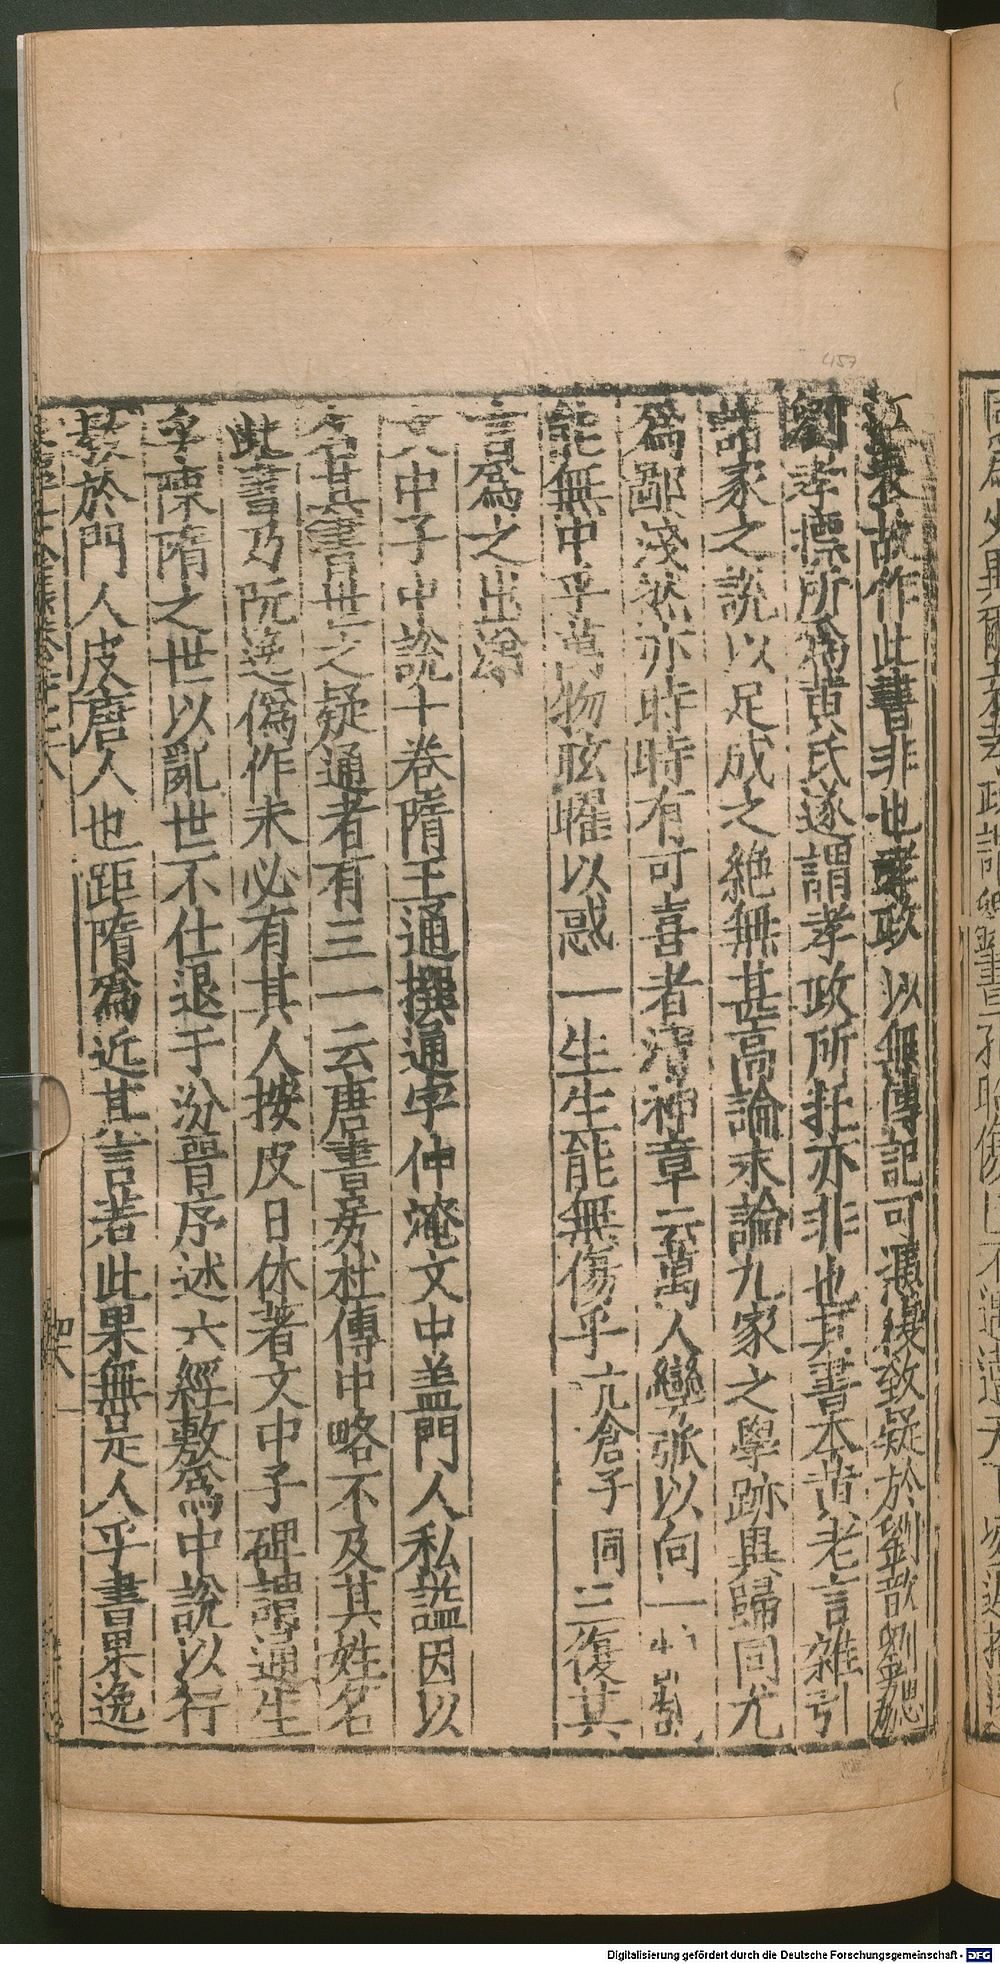 江表故作此書非也孝政以無傳記可憑復致疑於劉歆劉勰
劉孝標所爲黄氏遂謂孝政所托亦非也其書本黄老言雜引
諸家之說以足成之絶無甚高論末論九家之學跡異歸同尤
爲鄙淺然亦時時有可喜者清神章云萬人彎弧以向一
能無中乎萬物眩曜以惑一生生能無傷乎亢倉子同三復其
言爲之出涕
文中子中說十卷隋王通撰通字仲淹文中盖門人私謚因以
名其書世之疑通者有三一云唐書房杜傳中略不及其姓名
此書乃阮逸僞作未必有其人按皮日休著文中子碑謂通生
乎陳隋之世以亂世不仕退于汾晉序述六經敷爲中說以行
教於門人皮唐人也距隋爲近其言若此果無是人乎書果逸
四十六
457
Digitalisierung gefördert durch die Deutsche Forschungsgemeinschaft - DFG